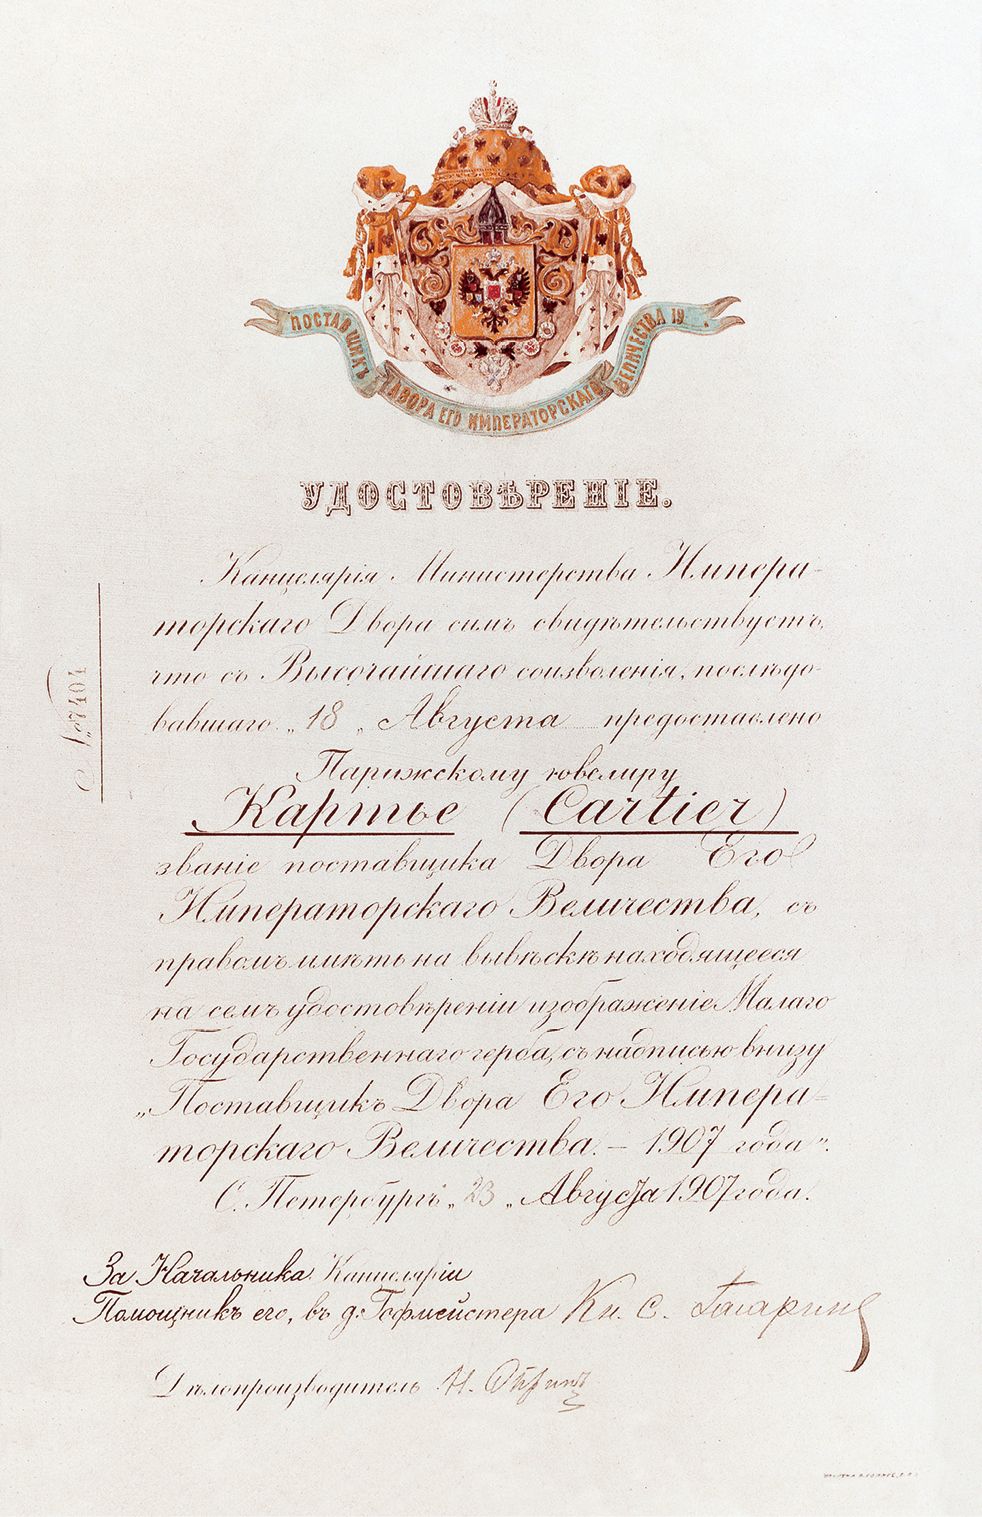 ПОСТАВЩИКЪ ДВОРА ЕГО ИМПЕРАТОРСКАГО ВЕЛИЧЕСТВА 19
УДОСТОВѢРЕНІЕ.
Канцелярія Министерства Импера-
торскаго Двора симъ свидѣтельствуетъ,
что съ Высочайшаго соизволенія, послѣдо-
вавшаго „18„ Августа предоставлено
Парижскому ювелиру
Картье (Cartier)
званіе поставщика Двора Его
Императорскаго Величества, съ
правомъ имѣть на вывѣскѣ находящееся
на семъ удостовѣреніи изображеніе Малаго
Государственнаго герба, съ надписью внизу
„Поставщикъ Двора Его Импера-
торскаго Величества. – 1907 года".
С. Петербургъ „23„ Августа 1907 года.
За Начальника Канцеляріи
Помощникъ его, въ д: Гофмейстера Кн. С. Гагаринъ
Дѣлопроизводитель Н.
№ 7404